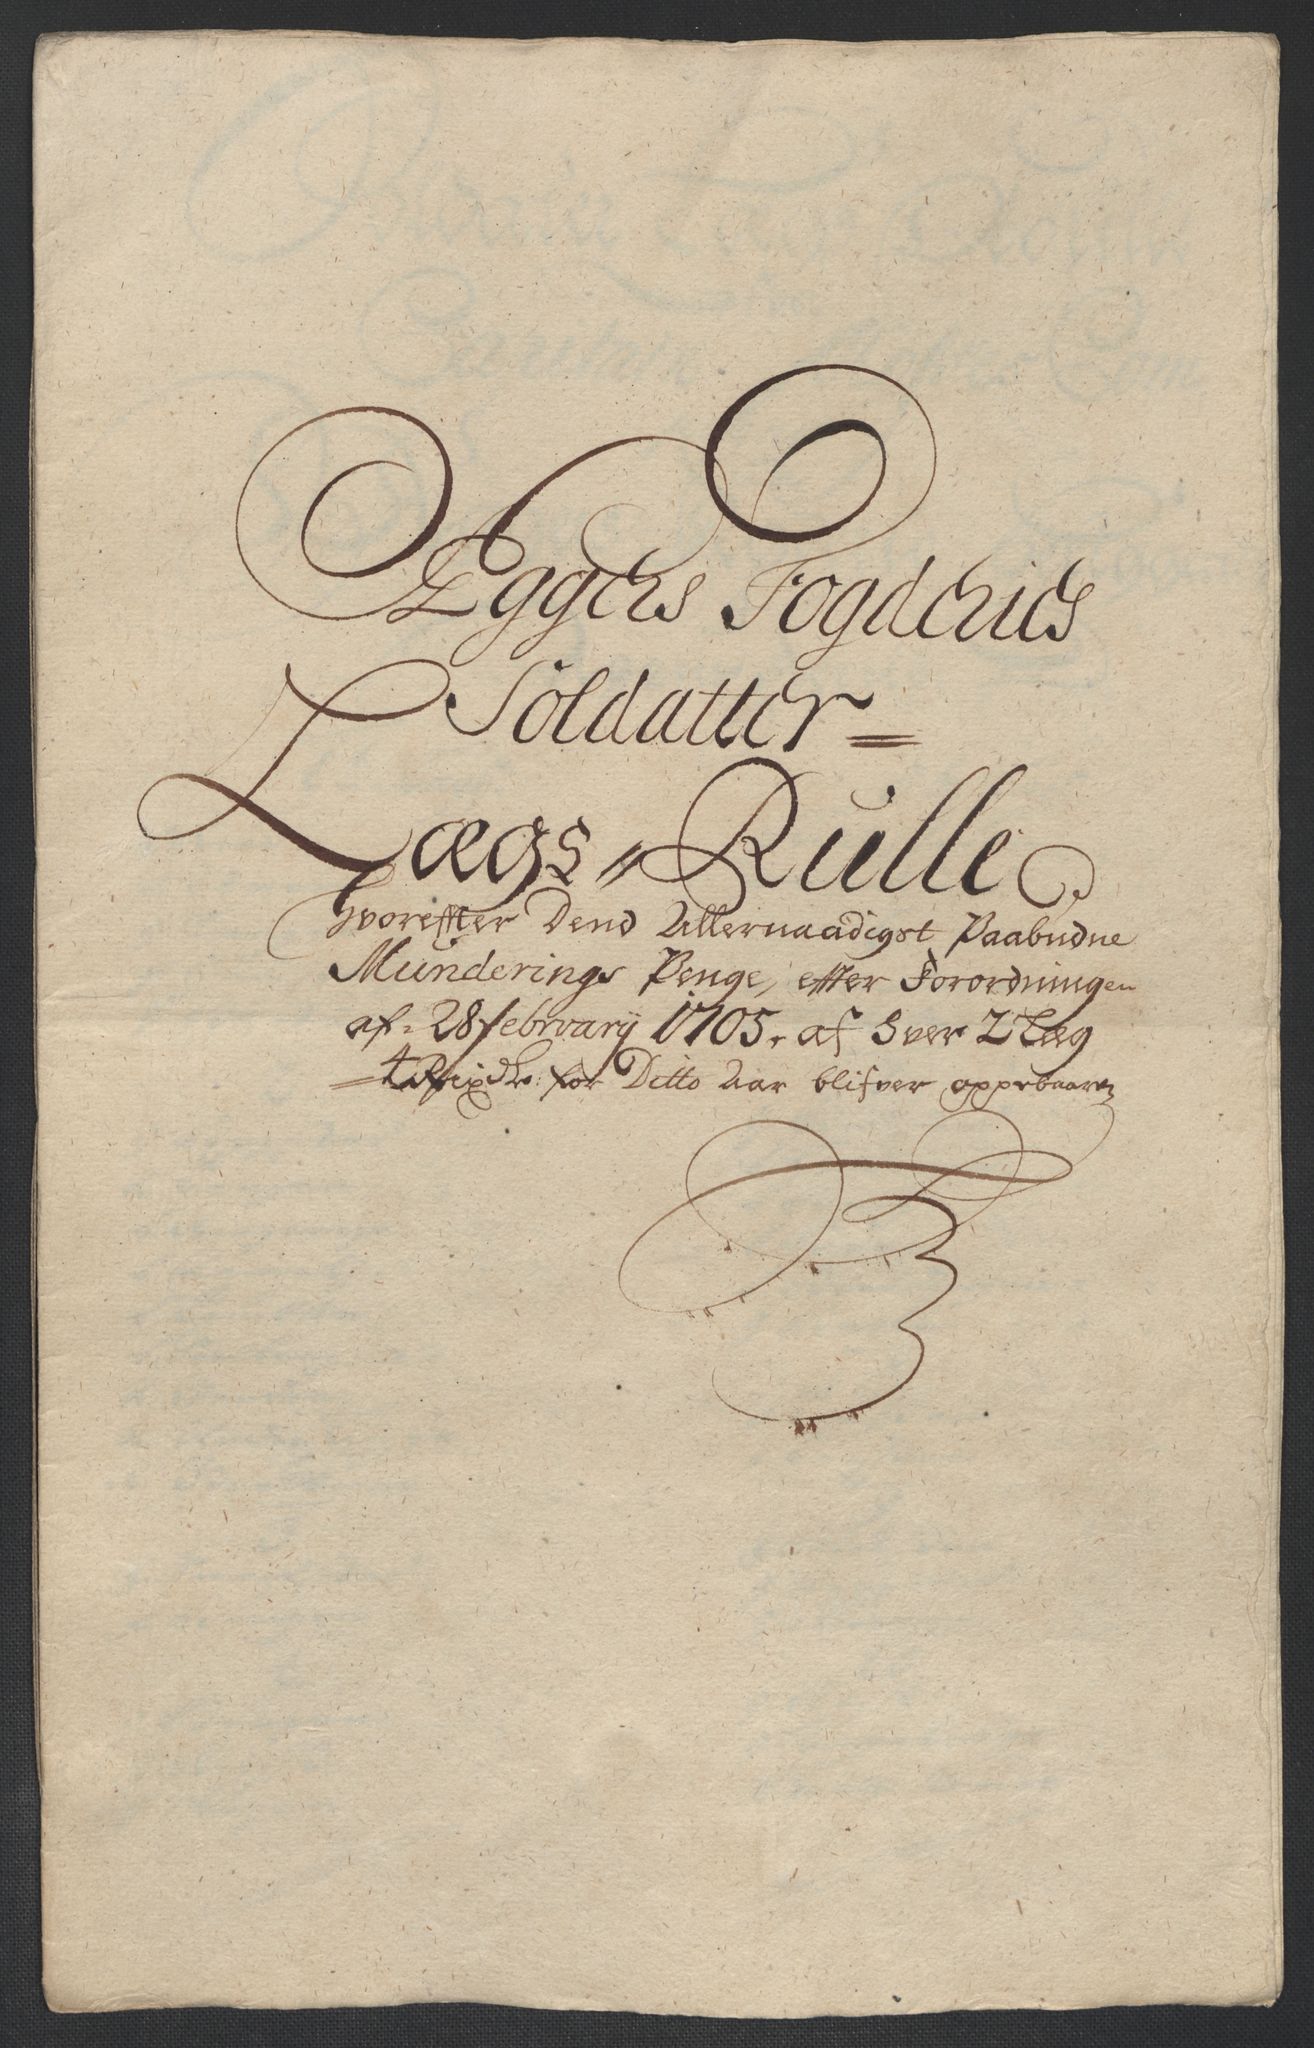 Eggers Fogderies
Soldatter =
Lægs // Rulle
Hvoreffter Dend Allernaadigst Paabudne
Munderings Penge, effter Forordningen
af 28 febrvarij 1705, af Hver 2 Læg
4 Rixdlr: for Ditto Aar blifver oppebaaren